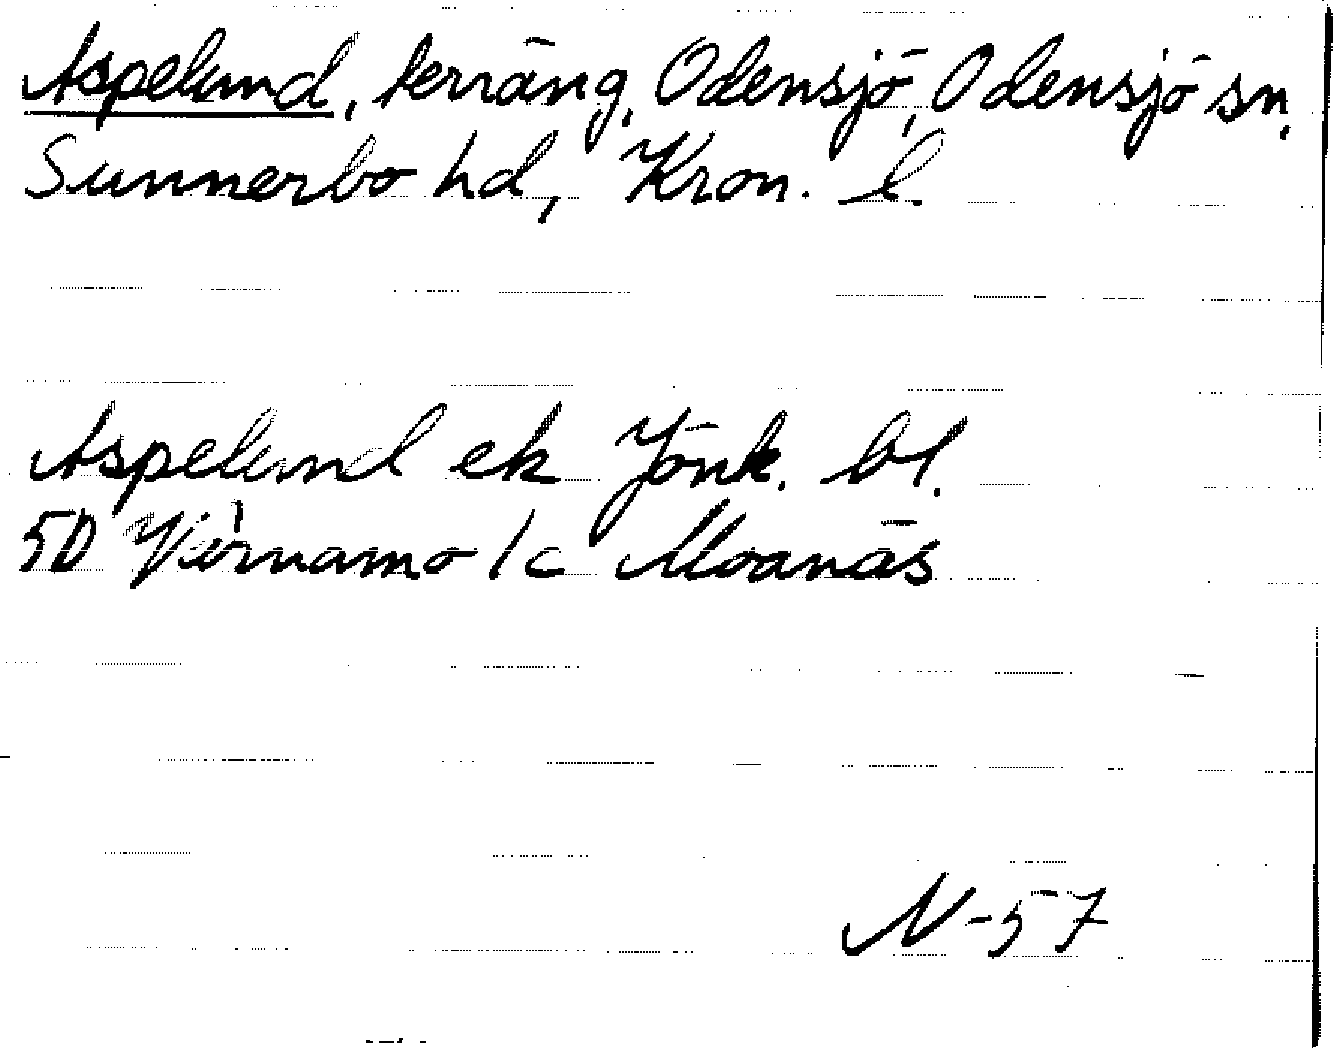 Aspelund, terräng, Odensjö, Odensjö sn,
Sunnerbo hd, Kron. l.
Aspelund ek Jönk. bl.
5D Värnamo 1c Moanäs
N-57